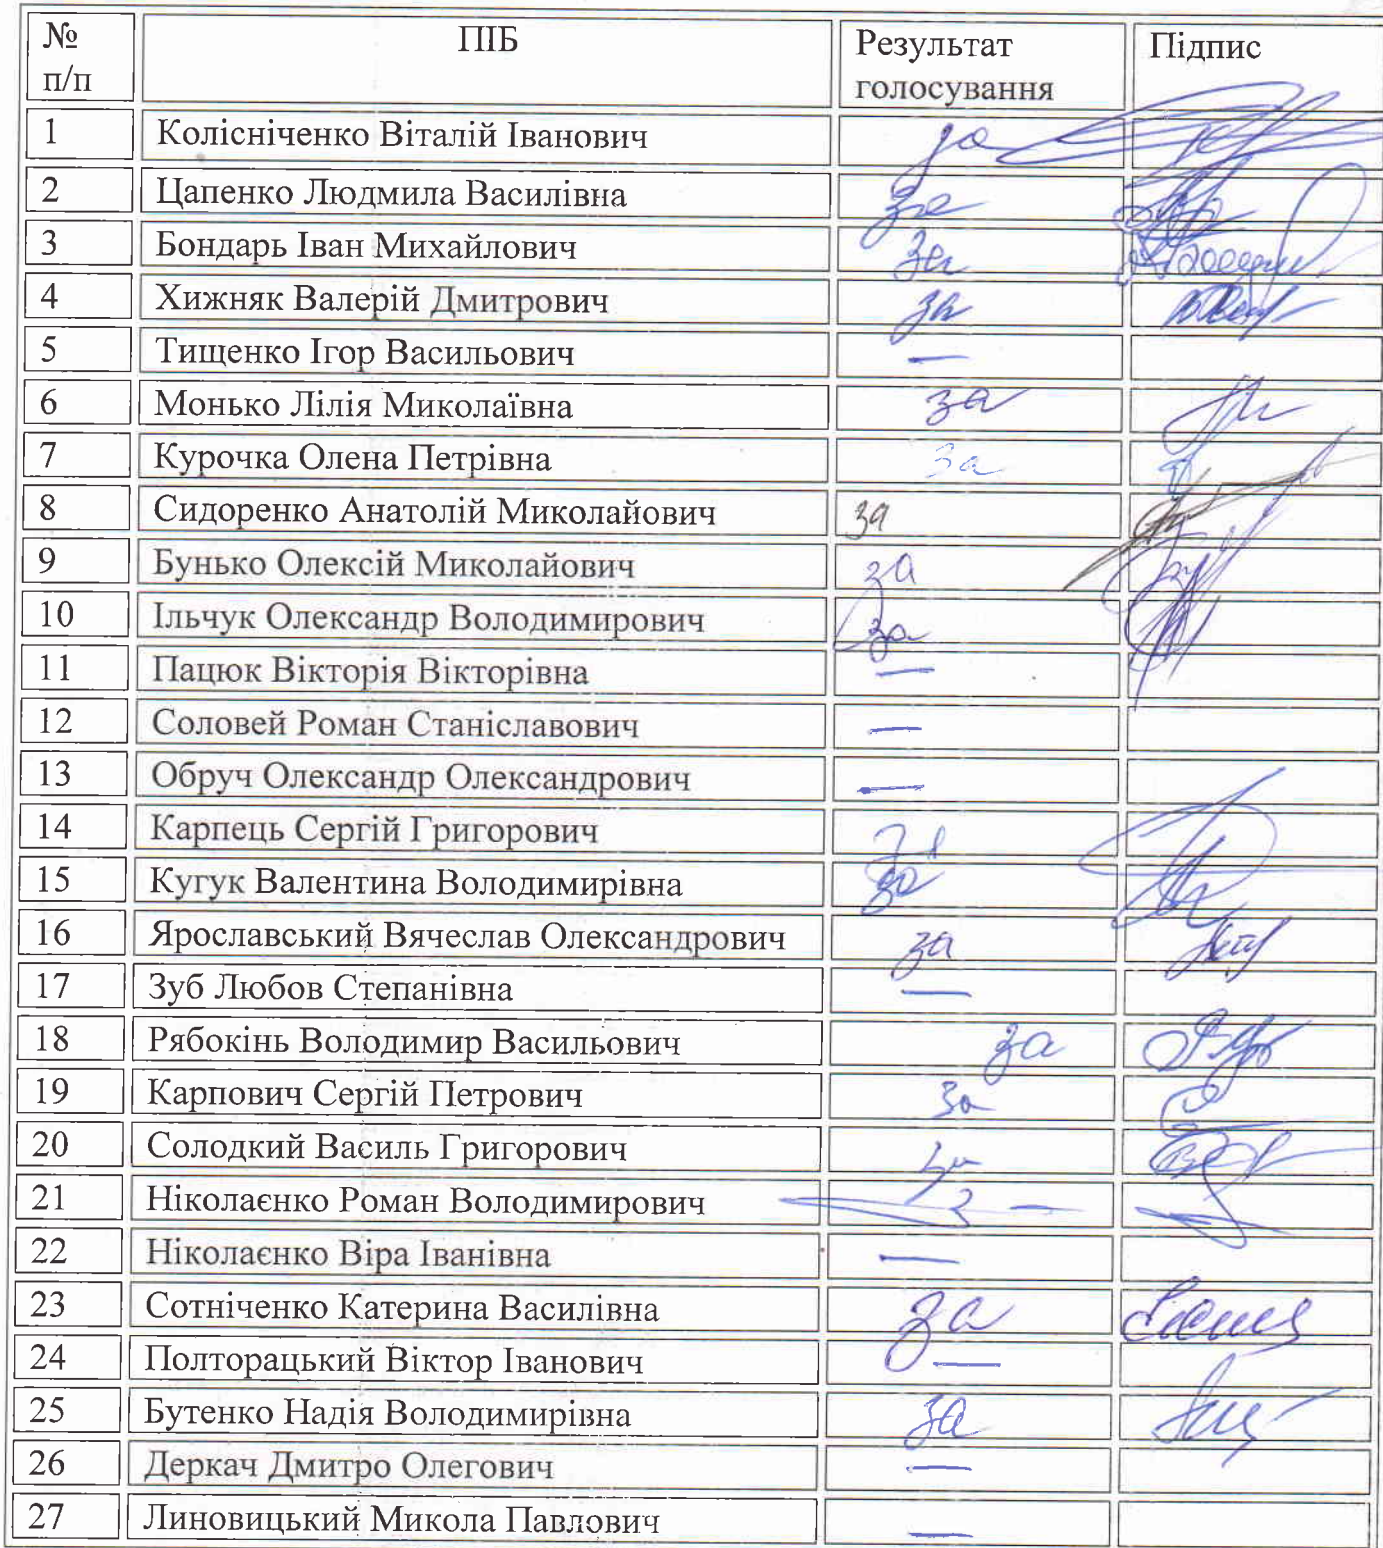 № п/п ПІБ Результат голосування Підпис
1 Колісніченко Віталій Іванович за
2 Цапенко Людмила Василівна за
3 Бондарь Іван Михайлович за
4 Хижняк Валерій Дмитрович за
5 Тищенко Ігор Васильович —
6 Монько Лілія Миколаївна за
7 Курочка Олена Петрівна за
8 Сидоренко Анатолій Миколайович за
9 Бунько Олексій Миколайович за
10 Ільчук Олександр Володимирович за
11 Пацюк Вікторія Вікторівна —
12 Соловей Роман Станіславович —
13 Обруч Олександр Олександрович —
14 Карпець Сергій Григорович за
15 Кугук Валентина Володимирівна за
16 Ярославський Вячеслав Олександрович за
17 Зуб Любов Степанівна —
18 Рябокінь Володимир Васильович за
19 Карпович Сергій Петрович за
20 Солодкий Василь Григорович за
21 Ніколаєнко Роман Володимирович —
22 Ніколаєнко Віра Іванівна —
23 Сотніченко Катерина Василівна за
24 Полторацький Віктор Іванович —
25 Бутенко Надія Володимирівна за
26 Деркач Дмитро Олегович —
27 Линовицький Микола Павлович —